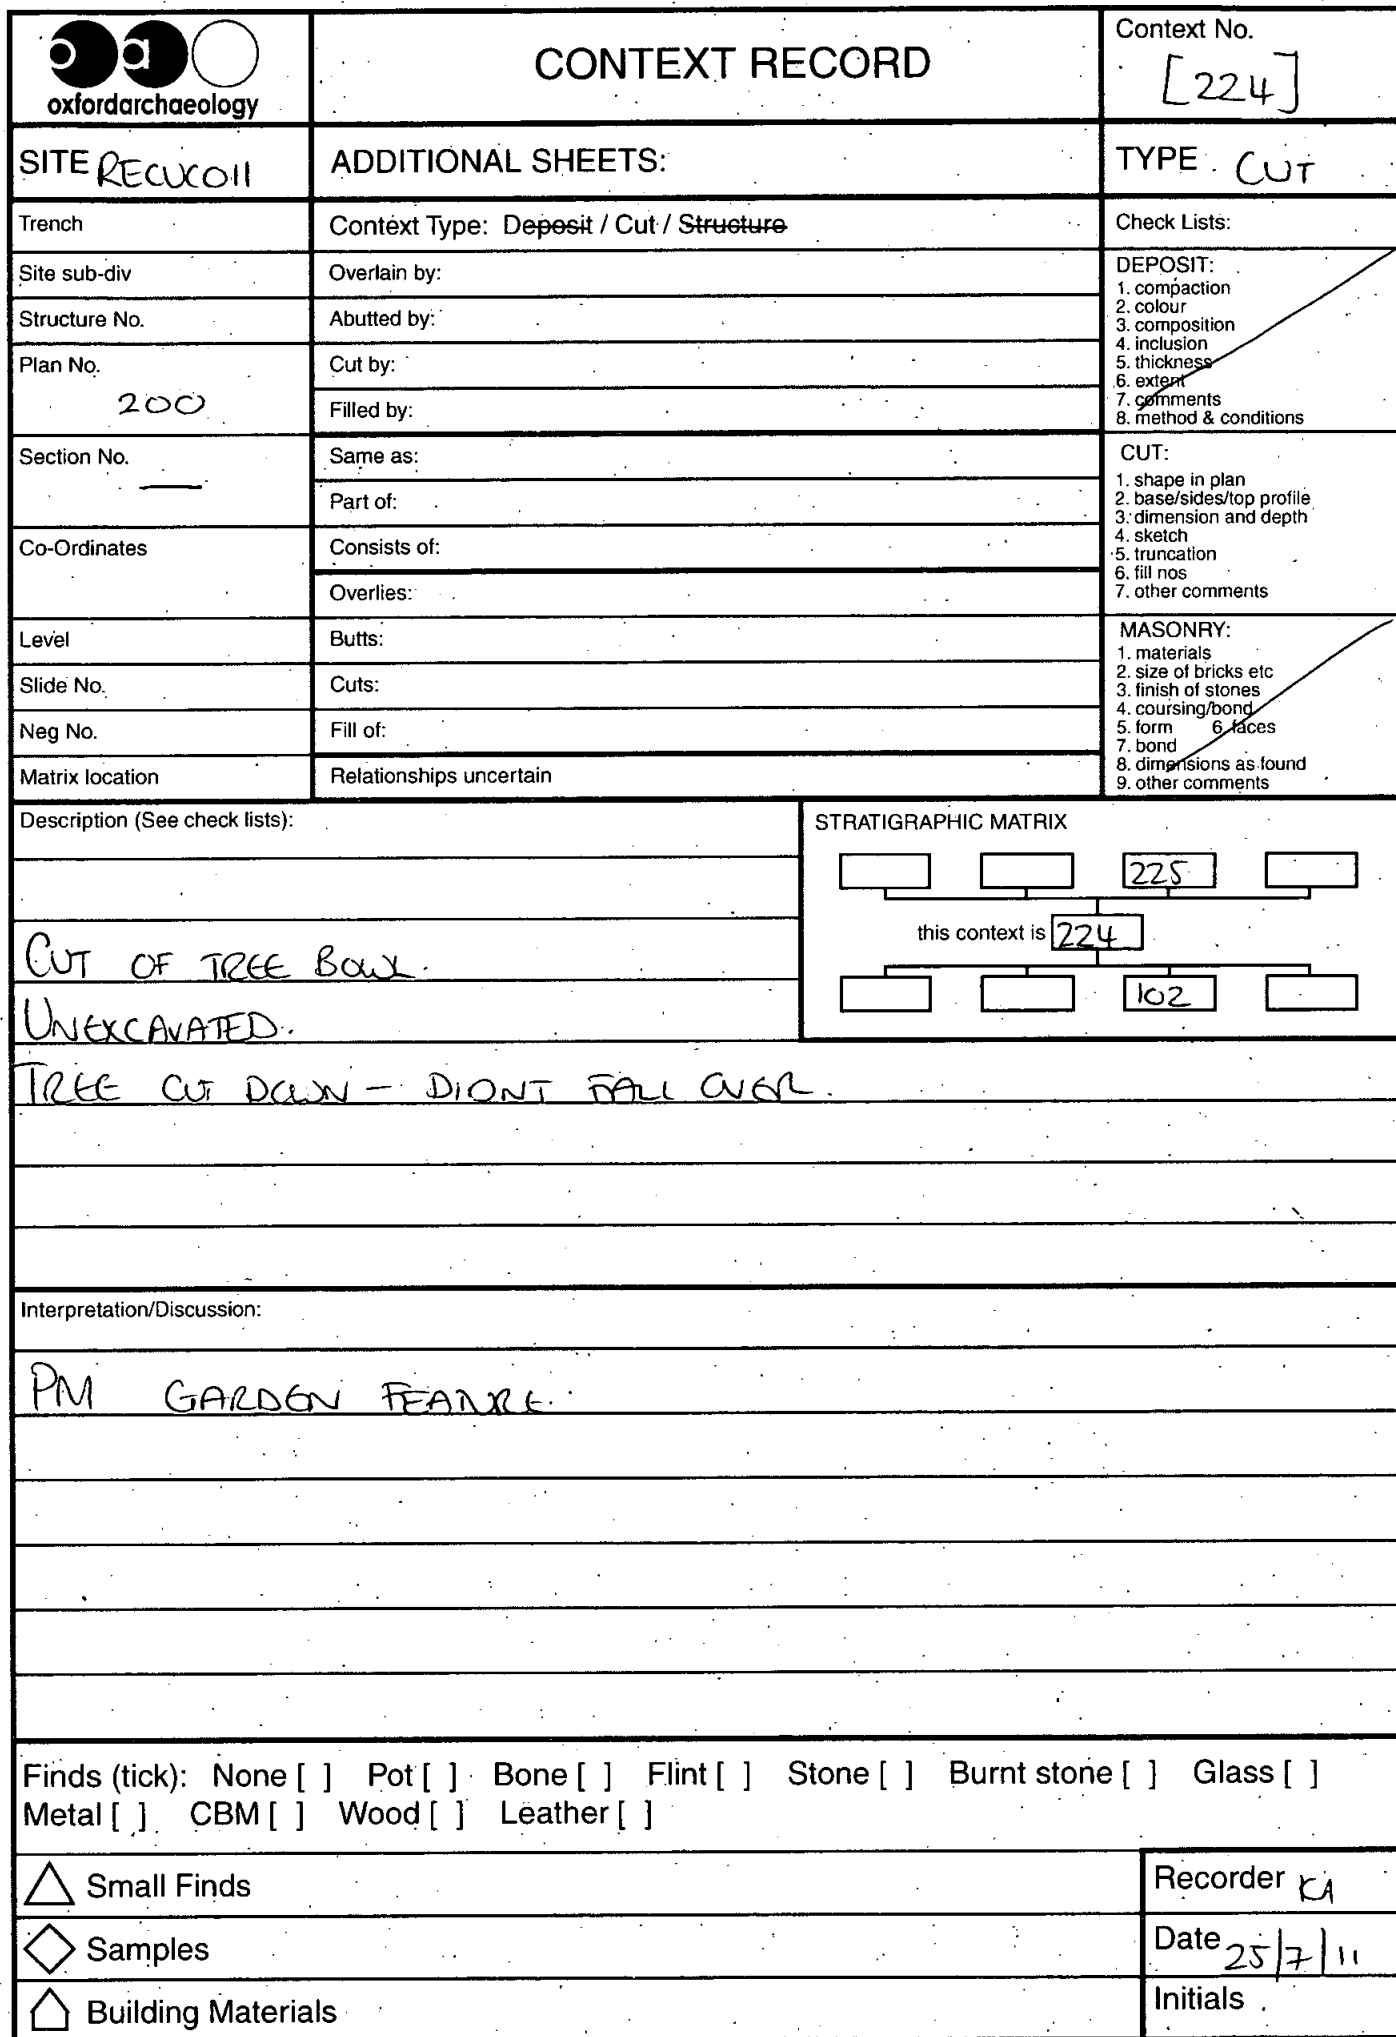 oxfordarchaeology
CONTEXT RECORD
Context No.
[224]
SITE RECUCO11
ADDITIONAL SHEETS:
TYPE CUT
Trench
Context Type: Deposit / Cut / Structure
Check Lists:
Site sub-div
Overlain by:
Structure No.
Abutted by:
Plan No.
200
Cut by:
Filled by:
Section No.
—
Same as:
Part of:
Co-Ordinates
Consists of:
Overlies:
Level
Butts:
Slide No.
Cuts:
Neg No.
Fill of:
Matrix location
Relationships uncertain
DEPOSIT:
1. compaction
2. colour
3. composition
4. inclusion
5. thickness
6. extent
7. comments
8. method & conditions
CUT:
1. shape in plan
2. base/sides/top profile
3. dimension and depth
4. sketch
5. truncation
6. fill nos
7. other comments
MASONRY:
1. materials
2. size of bricks etc
3. finish of stones
4. coursing/bond
5. form 6. faces
7. bond
8. dimensions as found
9. other comments
Description (See check lists):
CUT OF TREE BOWL.
UNEXCAVATED.
TREE CUT DOWN – DIDNT FALL OVER.
STRATIGRAPHIC MATRIX
225
this context is 224
102
Interpretation/Discussion:
PM GARDEN FEATURE.
Finds (tick): None [ ] Pot [ ] Bone [ ] Flint [ ] Stone [ ] Burnt stone [ ] Glass [ ]
Metal [ ] CBM [ ] Wood [ ] Leather [ ]
Small Finds
Samples
Building Materials
Recorder KA
Date 25/7/11
Initials